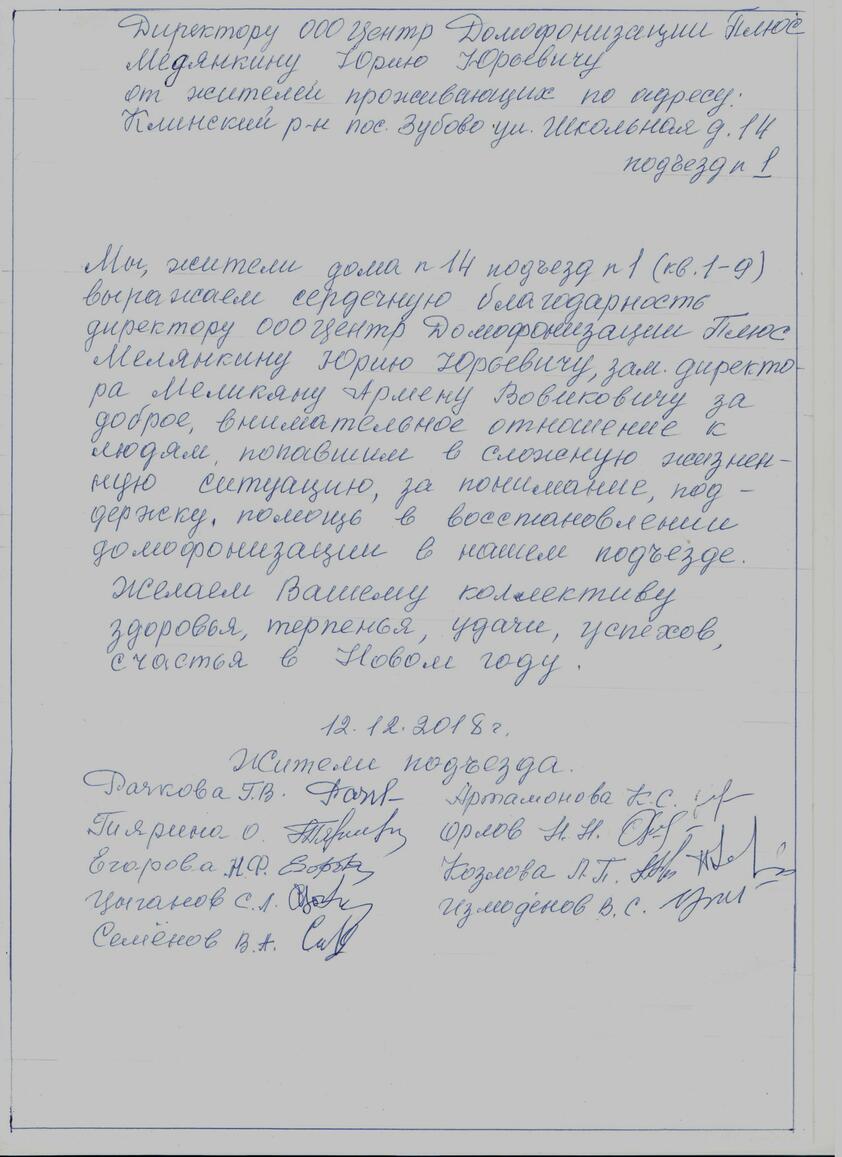 Директору ООО Центр Домофонизации Плюс
Медянкину Юрию Юрьевичу
от жителей проживающих по адресу:
Клинский р-н пос. Зубово ул. Школьная д. 14
подъезд n 1
Мы, жители дома n 14 подъезд n 1 (кв. 1-9)
выражаем сердечную благодарность
директору ООО Центр Домофонизации Плюс
Мелянкину Юрию Юрьевичу, зам. директо-
ра Меликяну Армену Вовиковичу за
доброе, внимательное отношение к
людям, попавшим в сложную жизнен-
ную ситуацию, за понимание, под-
держку, помощь в восстановлении
домофонизации в нашем подъезде.
Желаем Вашему коллективу
здоровья, терпенья, удачи, успехов,
счастья в Новом году.
12.12.2018г.
Жители подъезда.
Рачкова Г.В. Артамонова К.С.
О. Орлов Н.Н.
Егорова Н.Ф. Козлова Л.П.
Цыганов С.Л. Измоденов В.С.
Семёнов В.А.